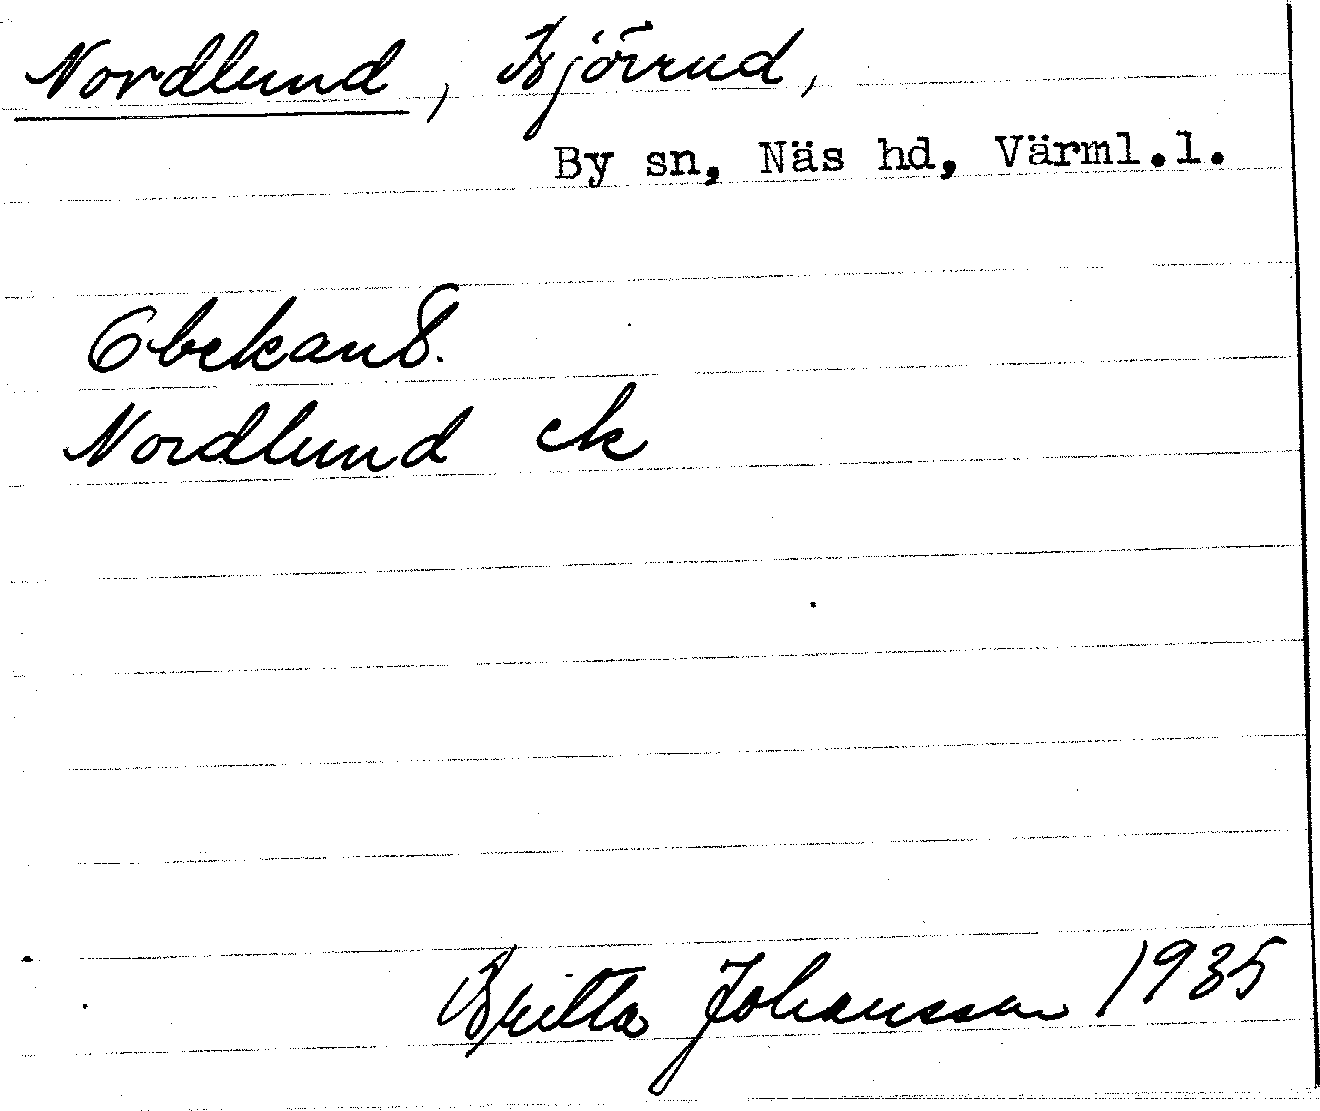 Nordlund, Björrud,
By sn, Näs hd, Värml.l.
Obekant.
Nordlund ek
Britta Johansson 1935